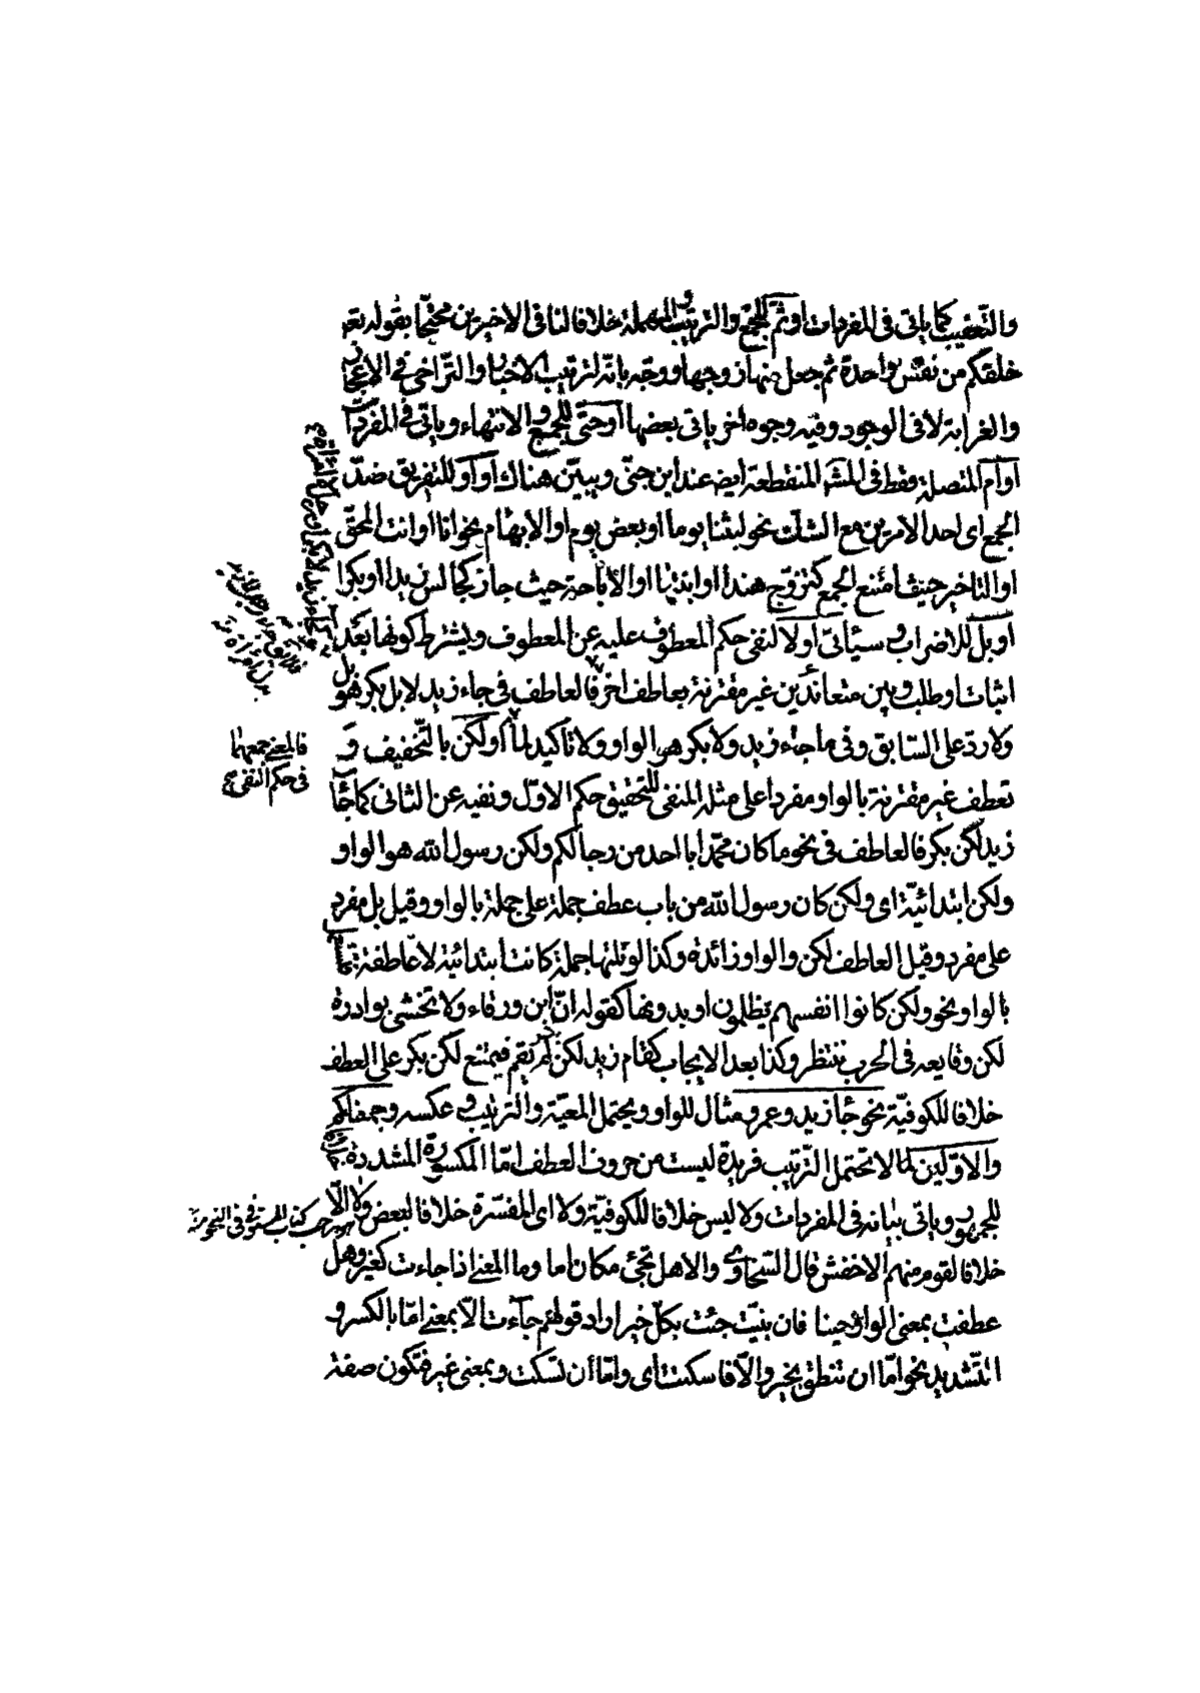 والتعقيب كما ياتى فى المفردات او ثم للجمع والترتيب والمهملة خلافا لنا فى الاخيرين محتجا بقوله تع
خلقكم من نفس واحدة ثم جعل منها زوجها ووجّه بانّه لترتيب الاخبار والتراخى فى الاعجاب
والغرابة لا فى الوجود وفيه وجوه اخر ياتى بعضها او حتّى للجمع والانتهاء وياتى فى المفردات
او ام المتصلة فقط فى المنقطعة ايضه عند ابن جنّى ويبيّن هناك او او للتفريق ضدّ
الجمع اى احد الامرين مع الشك نحو لبثنا يوما او بعض يوم او الابهام نحو انا او انت المحقّ
او التاخير حيث امتنع الجمع كتزوّج هندا او ابنتها او الاباحة حيث جاز كجالس زيدا او بكرا
او بل للاضراب وسيأتى او لا لنفى حكم المعطوف عليه عن المعطوف ويشترط كونها بعد
اثبات او طلب وبين متعاندين غير مقترنة بعاطف اخر فالعاطف فى جاء زيد لا بل بكر هو بل
ولا ردّ على السّابق وفى ما جاء زيد ولا بكر هو الواو ولا تاكيد لما او لكن بالتّخفيف و
تعطف غير مقترنة بالواو مفردا على مثله المنفى لتحقيق حكم الاوّل ونفيه عن الثانى كما جآ
زيد لكن بكر فالعاطف فى نحو ما كان محمّد ابا احد من رجالكم ولكن رسول الله هو الواو
ولكن ابتدائيّة اى ولكن كان رسول الله من باب عطف جملة على جملة بالواو وقيل بل مفرد
على مفرد وقيل العاطف لكن والواو زائدة وكذا لو تلتها جملة كانت ابتدائية لا عاطفة
بالواو نحو ولكن كانوا انفسهم يظلمون او بدونها كقوله انّ ابن ورقاء لا تخشى بوادره
لكن وقايعه فى الحرب تنتظر وكذا بعد الايجاب كقام زيد لكن لم يقم فيمتنع لكن بكر على العطف
خلافا للكوفيّة نحو جآ زيد وعمرو مثال للواو ويحتمل المعيّة والترتيب وعكسه وجمعناكم
والاوّلين لما لا تحتمل الترتيب فريدة ليست من حروف العطف امّا المكسورة المشددة
للجمهور وياتى بيانه فى المفردات ولا ليس خلافا للكوفيّة ولا اى المفسّرة خلافا لبعض ولا الّا
خلافا لقوم منهم الاخفش قال السّخاوى والاهل تجئ مكان اما وما المعنى اذا جاءت كغير وهل
عطفت بمعنى الواو حينا فان بنيت جئت بكلّ خير اراد قولهم جاءت الّا بمعنى امّا بالكسر و
التّشديد نحو امّا ان تنطق بخير والّا فاسكت اى وامّا أن تسكت وبمعنى غير فتكون صفة
فالمعنى جمعهما
فى حكم النفى